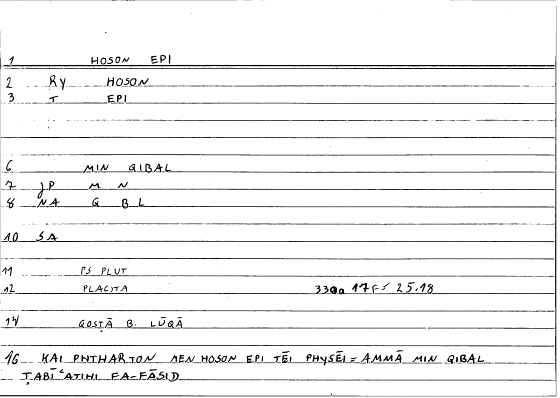 1 HOSON EPI
2 RY HOSON
3 T EPI
6 MIN QIBAL
7 JP M N
8 NA Q B L
10 SA
11 PS PLUT
12 PLACITA 330a 17 F= 25.18
14 QOSṬĀ B. LŪQĀ
16 KAI PHTHARTON MEN HOSON EPI TĒI PHYSĒI = AMMĀ MIN QIBAL
ṬABĪʿATIHI FA-FĀSID